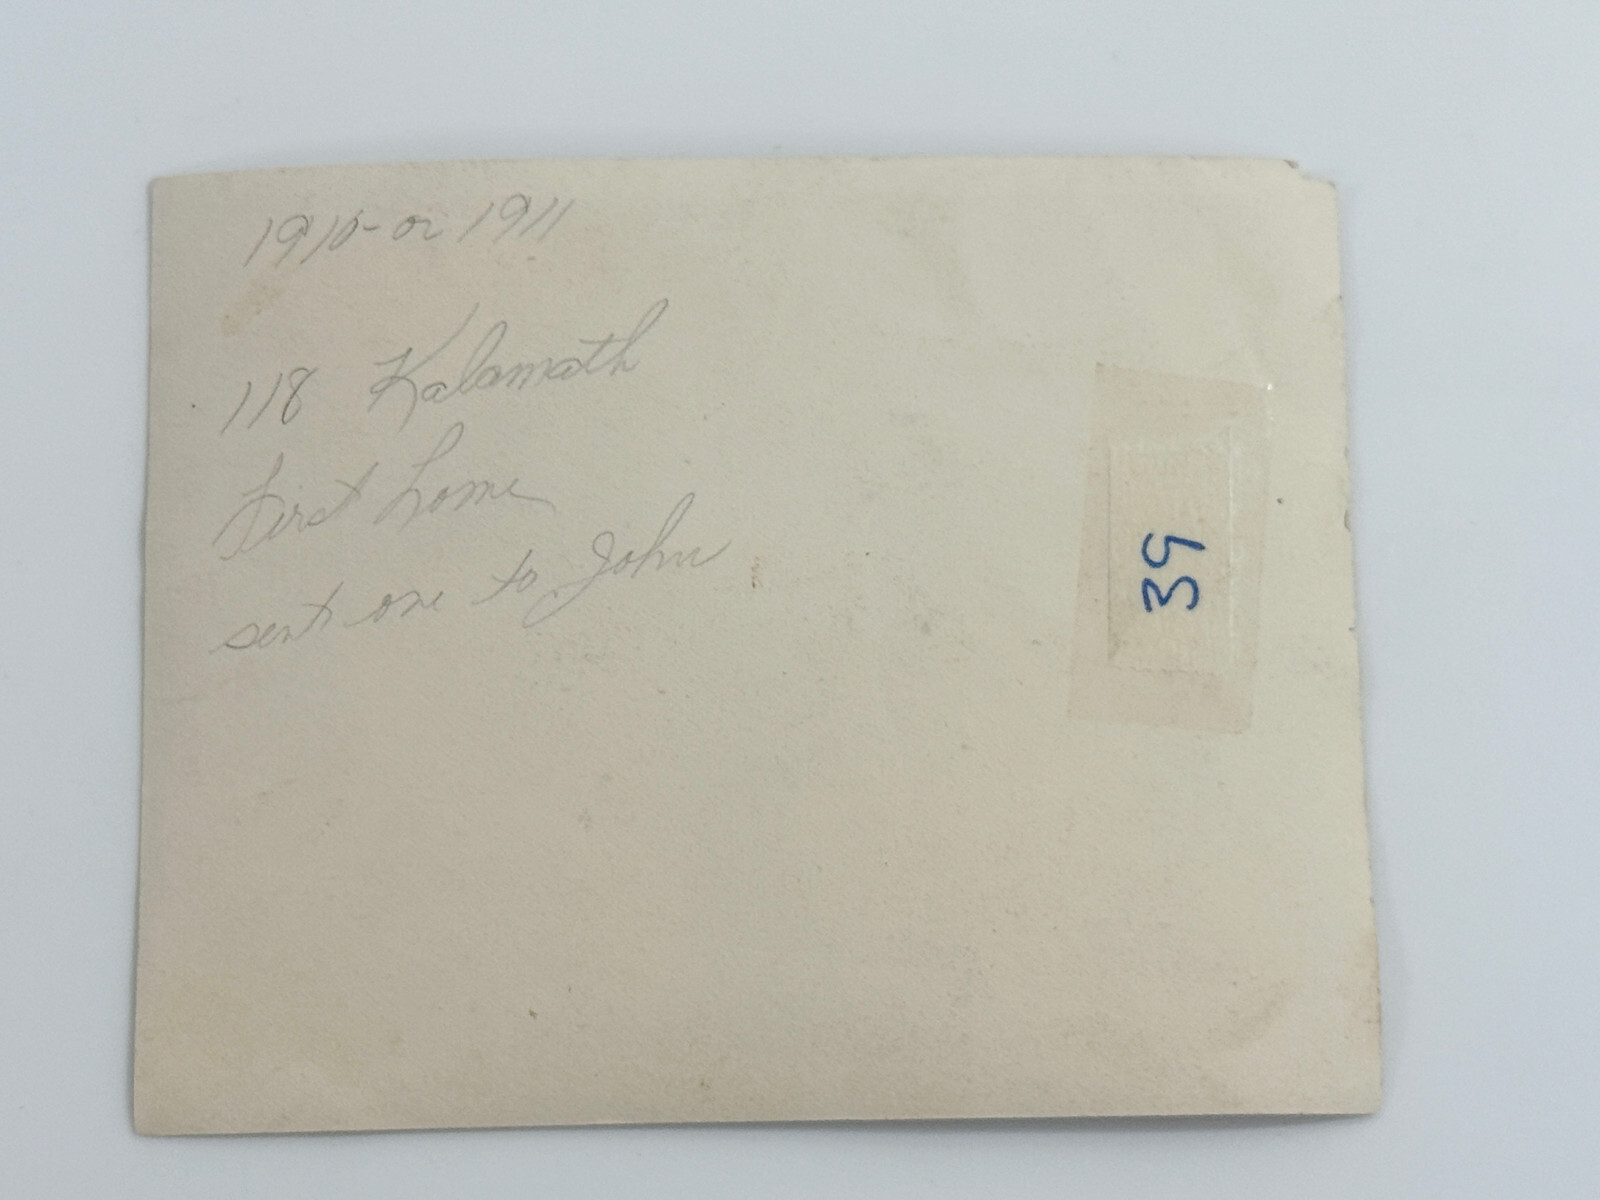 1910- or 1911
118 Kalamath
First home
sent one to John
39